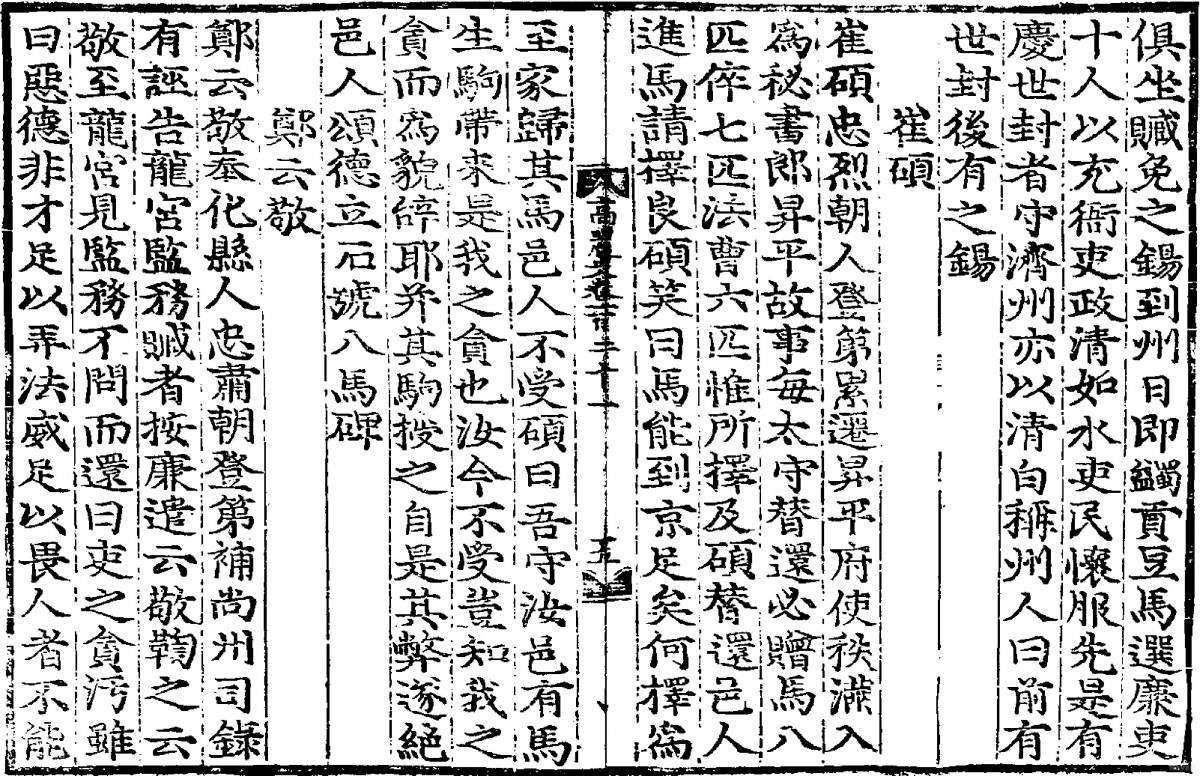 俱坐贓免之錫到州日即蠲貢豆馬選廉吏
十人以充衙吏政清如水吏民懷服先是有
慶世封者守濟州亦以清白稱州人曰前有
世封後有之錫
崔碩
崔碩忠烈朝人登第累遷昇平府使秩滿入
爲秘書郎昇平故事每太守替還必贈馬八
匹倅七匹法曹六匹惟所擇及碩替還邑人
進馬請擇良碩笑曰馬能到京足矣何擇爲
高麗史卷一百二十一
十五
至家歸其馬邑人不受碩曰吾守汝邑有馬
生駒帶來是我之貪也汝今不受豈知我之
貪而爲貌辭耶并其駒授之自是其弊遂絕
邑人頌德立石號八馬碑
鄭云敬
鄭云敬奉化縣人忠肅朝登第補尚州司錄
有誣告龍宮監務贓者按廉遣云敬鞫之云
敬至龍宮見監務不問而還曰吏之貪污雖
曰惡德非才足以弄法威足以畏人者不能